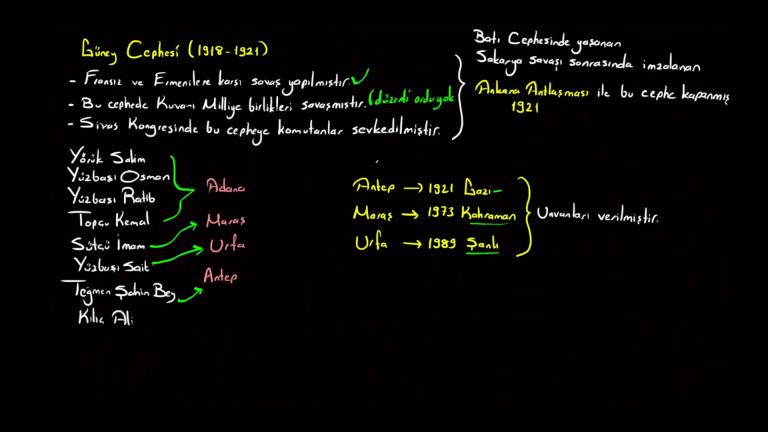 Güney Cephesi (1918-1921)
- Fransız ve Ermenilere karşı savaş yapılmıştır.
- Bu cephede Kuva-i Milliye birlikleri savaşmıştır. (düzenli ordu yok
- Sivas Kongresinde bu cepheye komutanlar sevkedilmiştir.
Batı Cephesinde yaşanan
Sakarya savaşı sonrasında imzalanan
Ankara Antlaşması ile bu cephe kapanmış
1921
Yörük Salim
Yüzbaşı Osman
Yüzbaşı Ratib
Topçu Kemal
Sütçü İmam
Yüzbaşı Sait
Teğmen Şahin Bey
Kılıç Ali
Adana
Maraş
Urfa
Antep
Antep → 1921 Gazi
Maraş → 1973 Kahraman
Urfa → 1989 Şanlı
Unvanları verilmiştir.